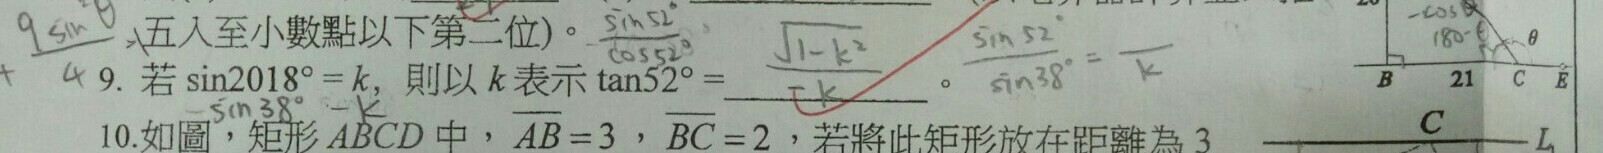 9 sin²θ
+ 4
五入至小數點以下第二位)。 sin52° / cos52°
9. 若 sin2018° = k, 則以 k 表示 tan52° = √1-k² / -k 。 sin52° / sin38° = — / k
-sin38° -k
10.如圖,矩形 ABCD 中, AB = 3 , BC = 2 ,若將此矩形放在距離為 3
-cosθ
180-θ θ
B 21 C E
C
L₁